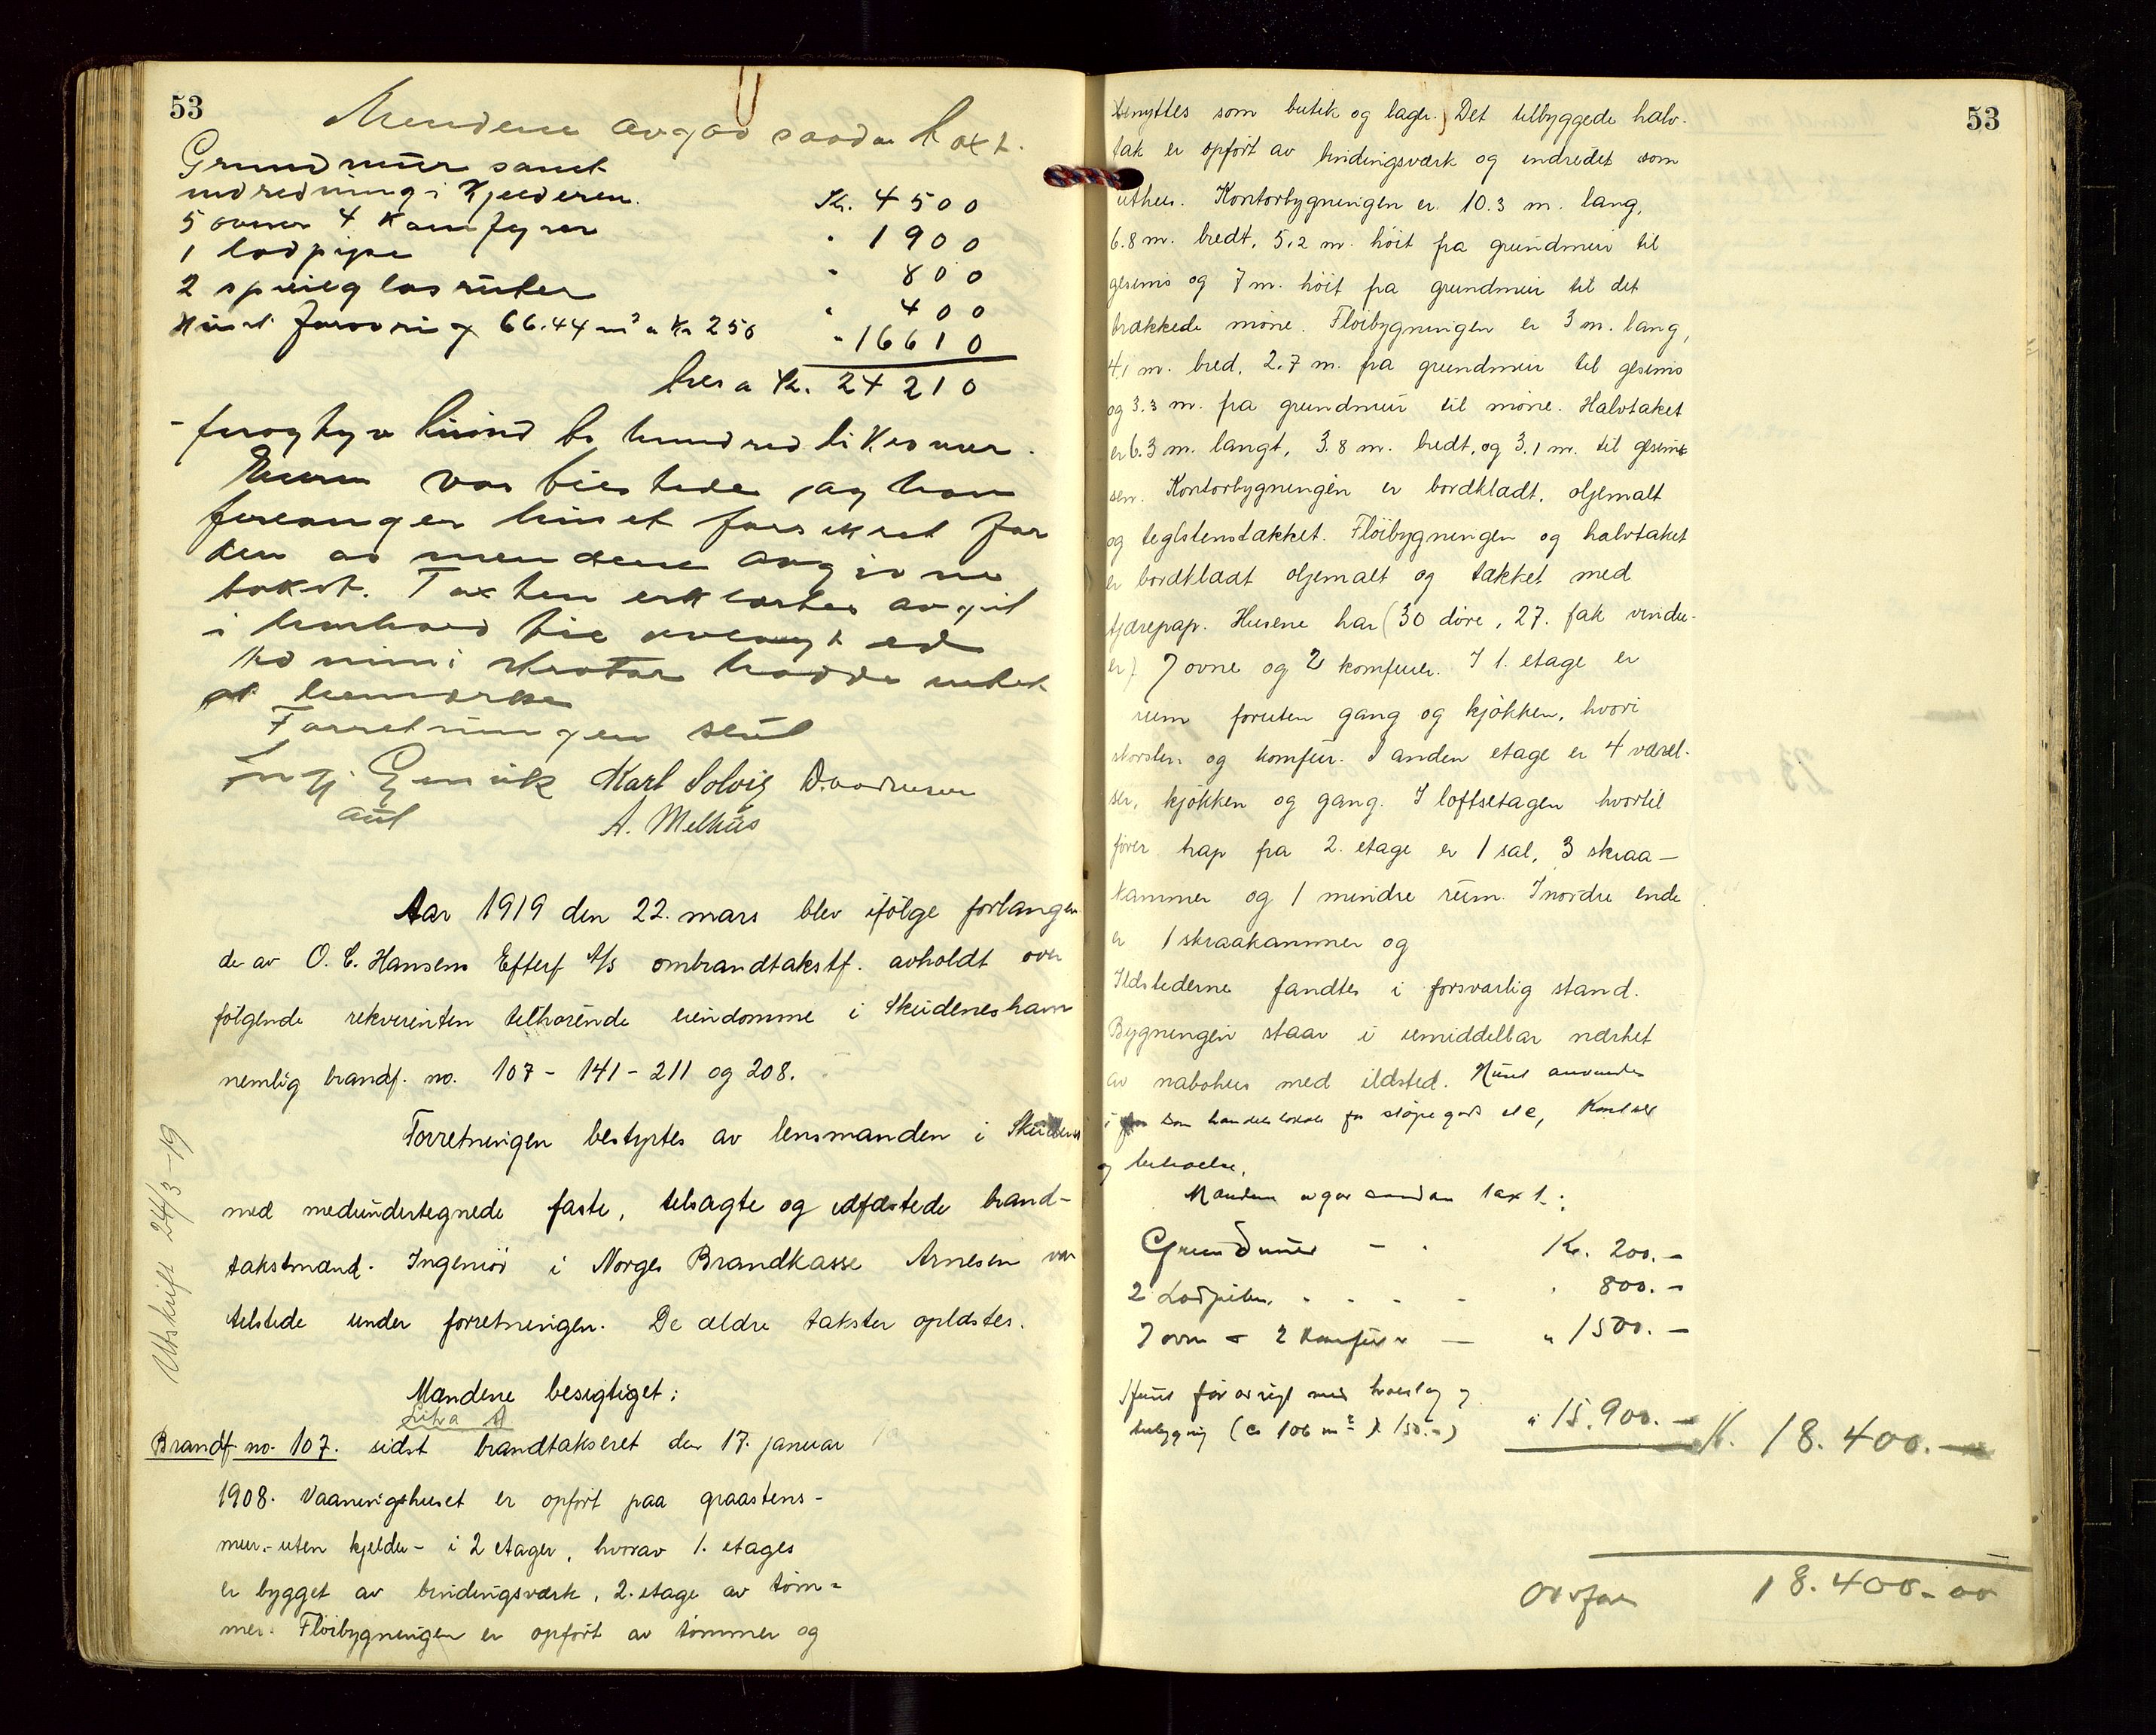 53
Mendene avgav saadan taxt.
Grundmur samt
indredning i Kjelderen. Kr. 4500
5 ovner 4 Kamfyrer " 1900
1 lodpipe " 800
2 speilglasruter " 400
Huset forøvrig 66.44 m² a Kr 250 " 16610
tils a Kr. 24210
- firogtyve tusind to hundred ti Kroner.
var tilstede, og han
forlanger huset forsikret for
den av mendene avgivne
takst. Taxten erklærtes avgit
i henhold til avlagt ed
Administrator hadde intet
at bemerke
Forretningen slut
Karl Solvig
aut A. Melhus
Aar 1919 den 22. mars blev ifølge forlangen
de av O. C. Hansens Efterf A/S ombrandtakstf. avholdt over
følgende rekvirenten tilhørende eiendomme i Skudeneshavn
nemlig brandf. no. 107 - 141 - 211 og 208.
Forretningen bestyrtes av lensmanden i Skudenes
med medundertegnede faste, tilsagte og edfæstede brand-
takstmænd. Ingeniør i Norges Brandkasse Arnesen var
tilstede under forretningen. De ældre takster oplæstes.
Utskrift 24/3-19
Mændene besigtiget:
Litra A
Brandf. no. 107. sidst brandtakseret den 17. januar
1908. Vaaningshuset er opført paa graastens-
mur - uten kjelder - i 2 etager, hvorav 1. etages
er bygget av bindingsværk, 2. etage av tøm-
mer. Fløibygningen er opført av tømmer og
53
benyttes som butik og lager.) Det tilbyggede halv-
tak er opført av bindingsværk og indredet som
uthus. Kontorbygningen er 10.3 m. lang,
6.8 m. bredt, 5.2 m. høit fra grundmur til
gesims og 7 m. høit fra grundmur til det
brækkede møne. Fløibygningen er 3 m. lang,
4.1 m. bred, 2.7 m. fra grundmur til gesims
og 3.3 m. fra grundmur til møne. Halvtaket
er 6.3 m. langt, 3.8 m. bredt, og 3.1 m. til gesims
sen. Kontorbygningen er bordklædt, oljemalt
og teglstenstækket. Fløibygningen og halvtaket
er bordklædt oljemalt og tækket med
tjærepap. Husene har (30 døre, 27. fak vindu-
er) 7 ovne og 2 komfurer. I 1. etage er
rum foruten gang og kjøkken, hvori
skorsten og komfur. I anden etage er 4 værel-
ser, kjøkken og gang. I loftsetagen hvortil
fører trap fra 2. etage er 1 sal, 3 skraa-
kammer og 1 mindre rum. I nordre ende
er 1 skraakammer og
Ildstederne fandtes i forsvarlig stand.
Bygningen staar i umiddelbar nærhet
av nabohus med ildsted. Huset anvendes
som handelslokale for støpegods etc, Kontor
og beboelse.
Mændene avgav saadan taxt:
Grundmur - Kr. 200.-
2 Lodpiber. " 800.-
7 ovne + 2 Komfurer - " 1500.-
Huset forøvrigt med kvistlag og
tilbygning (ca 106 m² à 150.-) " 15.900.- Kr. 18.400.-
Overføres 18.400.00